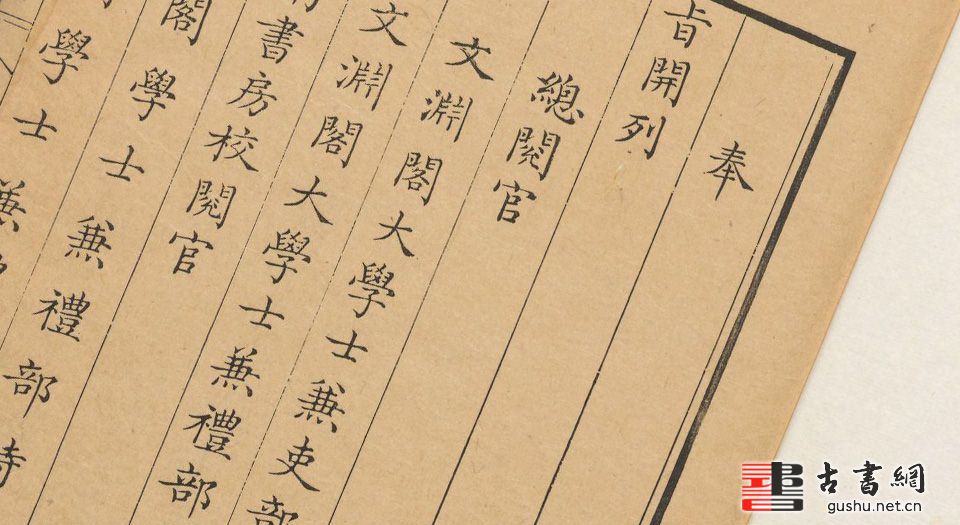 奉
旨開列
總閱官
文淵閣大學士兼吏部
文淵閣大學士兼禮部
書房校閱官
閣學士兼禮部侍
學士兼
古書網
gushu.net.cn